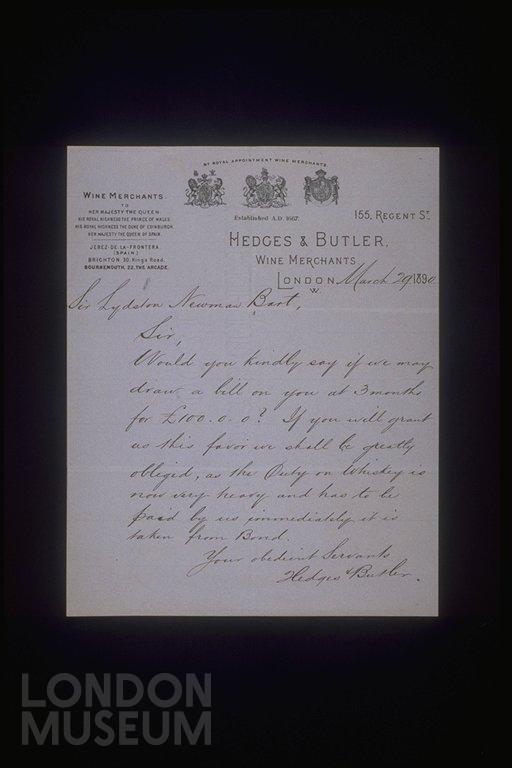 BY ROYAL APPOINTMENT WINE MERCHANTS
Established A.D. 1667.
WINE MERCHANTS
TO
HER MAJESTY THE QUEEN.
HIS ROYAL HIGHNESS THE PRINCE OF WALES.
HIS ROYAL HIGHNESS THE DUKE OF EDINBURGH.
HER MAJESTY THE QUEEN OF SPAIN.
JEREZ-DE-LA-FRONTERA
(SPAIN)
BRIGHTON, 30, King's Road.
BOURNEMOUTH, 22, THE ARCADE.
155, REGENT ST.
HEDGES & BUTLER,
WINE MERCHANTS
LONDON March 29 1890
W.
Sir Lydston Newman Bart,
Sir,
Would you kindly say if we may
draw a bill on you at 3 months
for £100.0.0? If you will grant
us this favor we shall be greatly
obliged, as the Duty on Whiskey is
now very heavy and has to be
paid by us immediately it is
taken from Bond.
Your obedient Servants
Hedges & Butler.
LONDON
MUSEUM